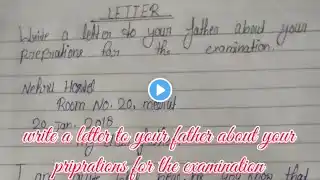 LETTER
Write a letter to your father about your
preprations for the examination.
Nehru Hostel
Room No. 20, meerut
20 Jan, 2018
my
write a letter to your father about your
priprations for the examination
I am
you now that